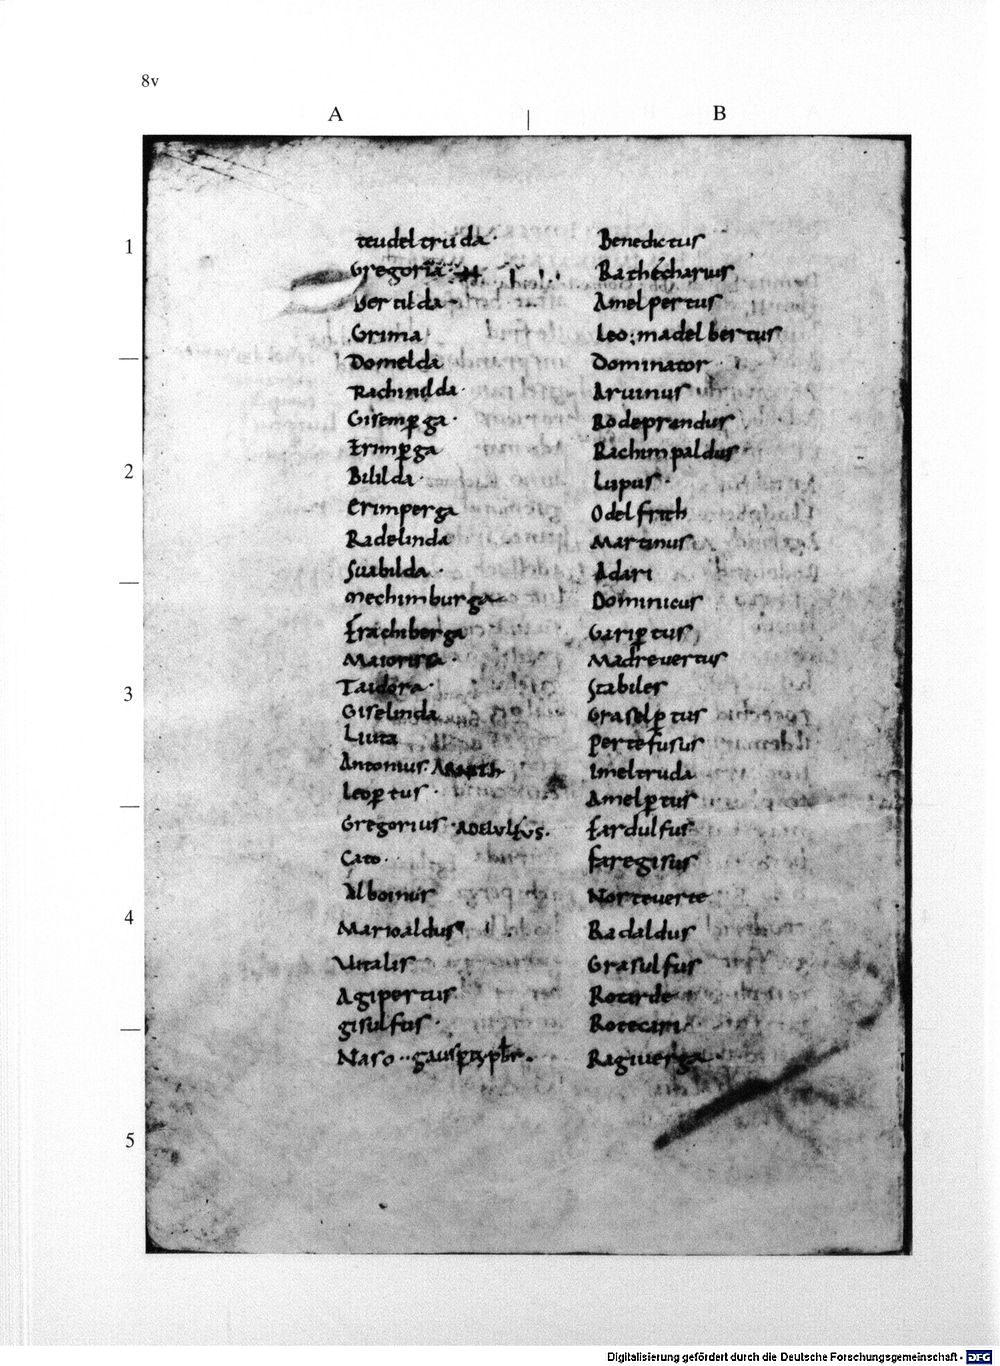 8v
A
B
1
2
3
4
5
teudeltruda·
Gregoria·
Bertilda
Grima
Domelda
Rachinilda·
Gisemꝑga·
Erimꝑga
Bililda·
Erimperga
Radelinda
Suabilda·
Mechimburga
Erachiberga
Maiorissa·
Taidora·
Giselinda
Liuta
Antonius·
Leoꝑtus·
Gregorius·ADELULFUS·
Cato·
Alboinus
Marioaldus
Uitalis
Agipertus
gisulfus·
Naso··gausꝑtus pbr·
Benedictus
Rathecharius
Amelpertus
Leo;madelbertus
Dominator
Aruinus
Rodeprandus
Rachimpaldus
Lupus·
Odelfrith
Martinus
Adari
Dominicus
Gariꝑtus
Madrevertus
Stabiles
Graselꝑtus
Pertefusus
Imeltruda
Amelꝑtus
Fardulfus
Faregisus
Norteuerte
Radaldus
Grasulfus
Roterde
Ragiuerga
Digitalisierung gefördert durch die Deutsche Forschungsgemeinschaft - DFG